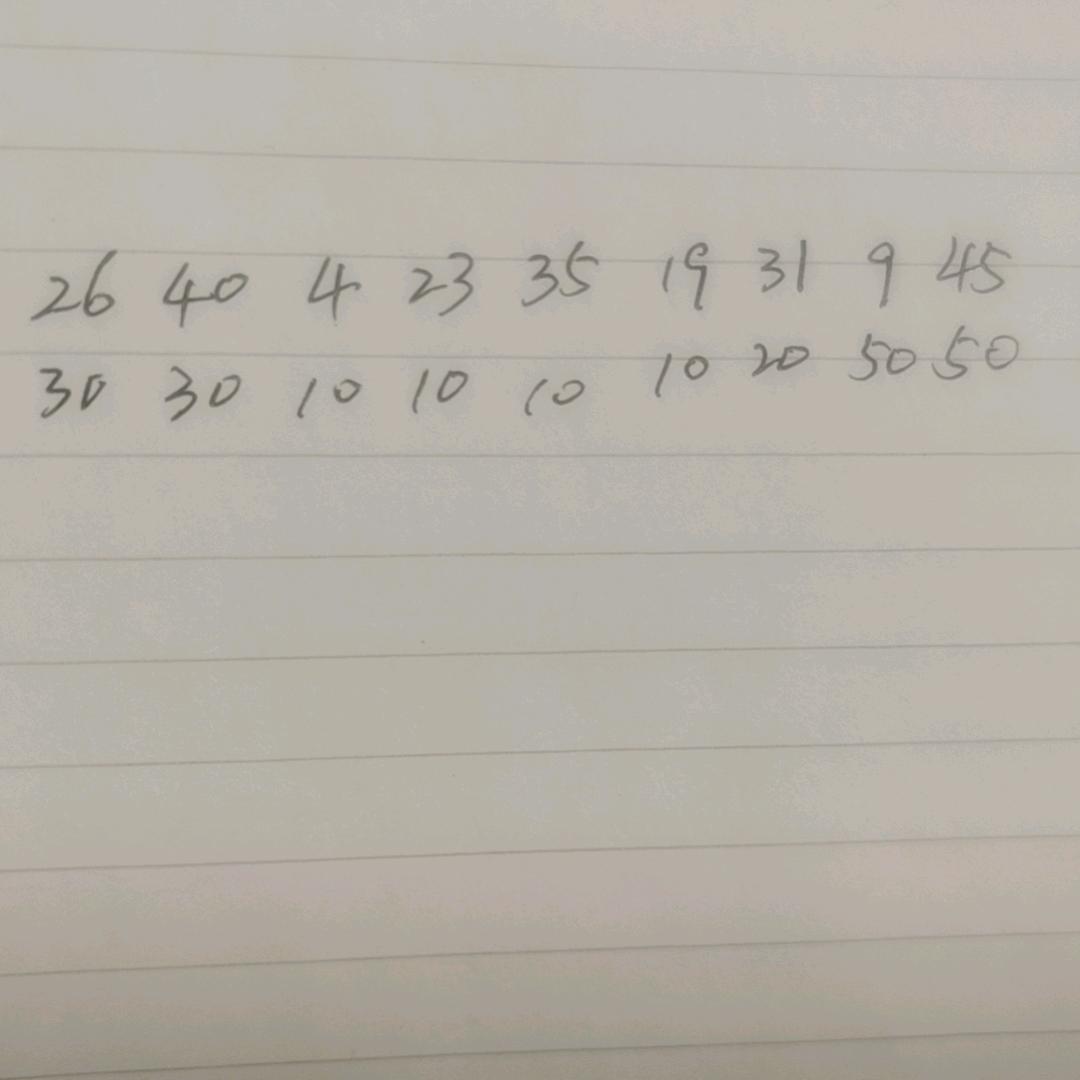 26 40 4 23 35 19 31 9 45
30 30 10 10 10 10 20 50 50